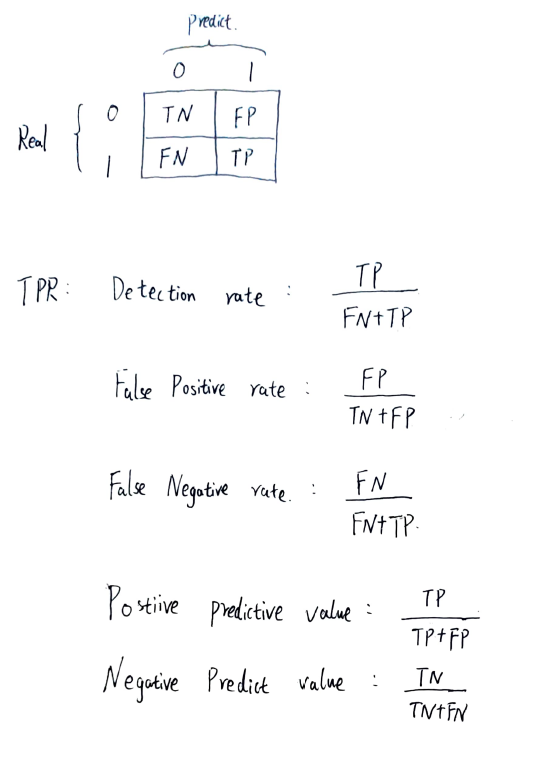 Predict.
0 1
Real { 0 TN FP
1 FN TP
TPR: Detection rate : TP / FN+TP
False Positive rate : FP / TN+FP
False Negative rate. : FN / FN+TP.
Postiive predictive value : TP / TP+FP
Negative Predict value : TN / TN+FN